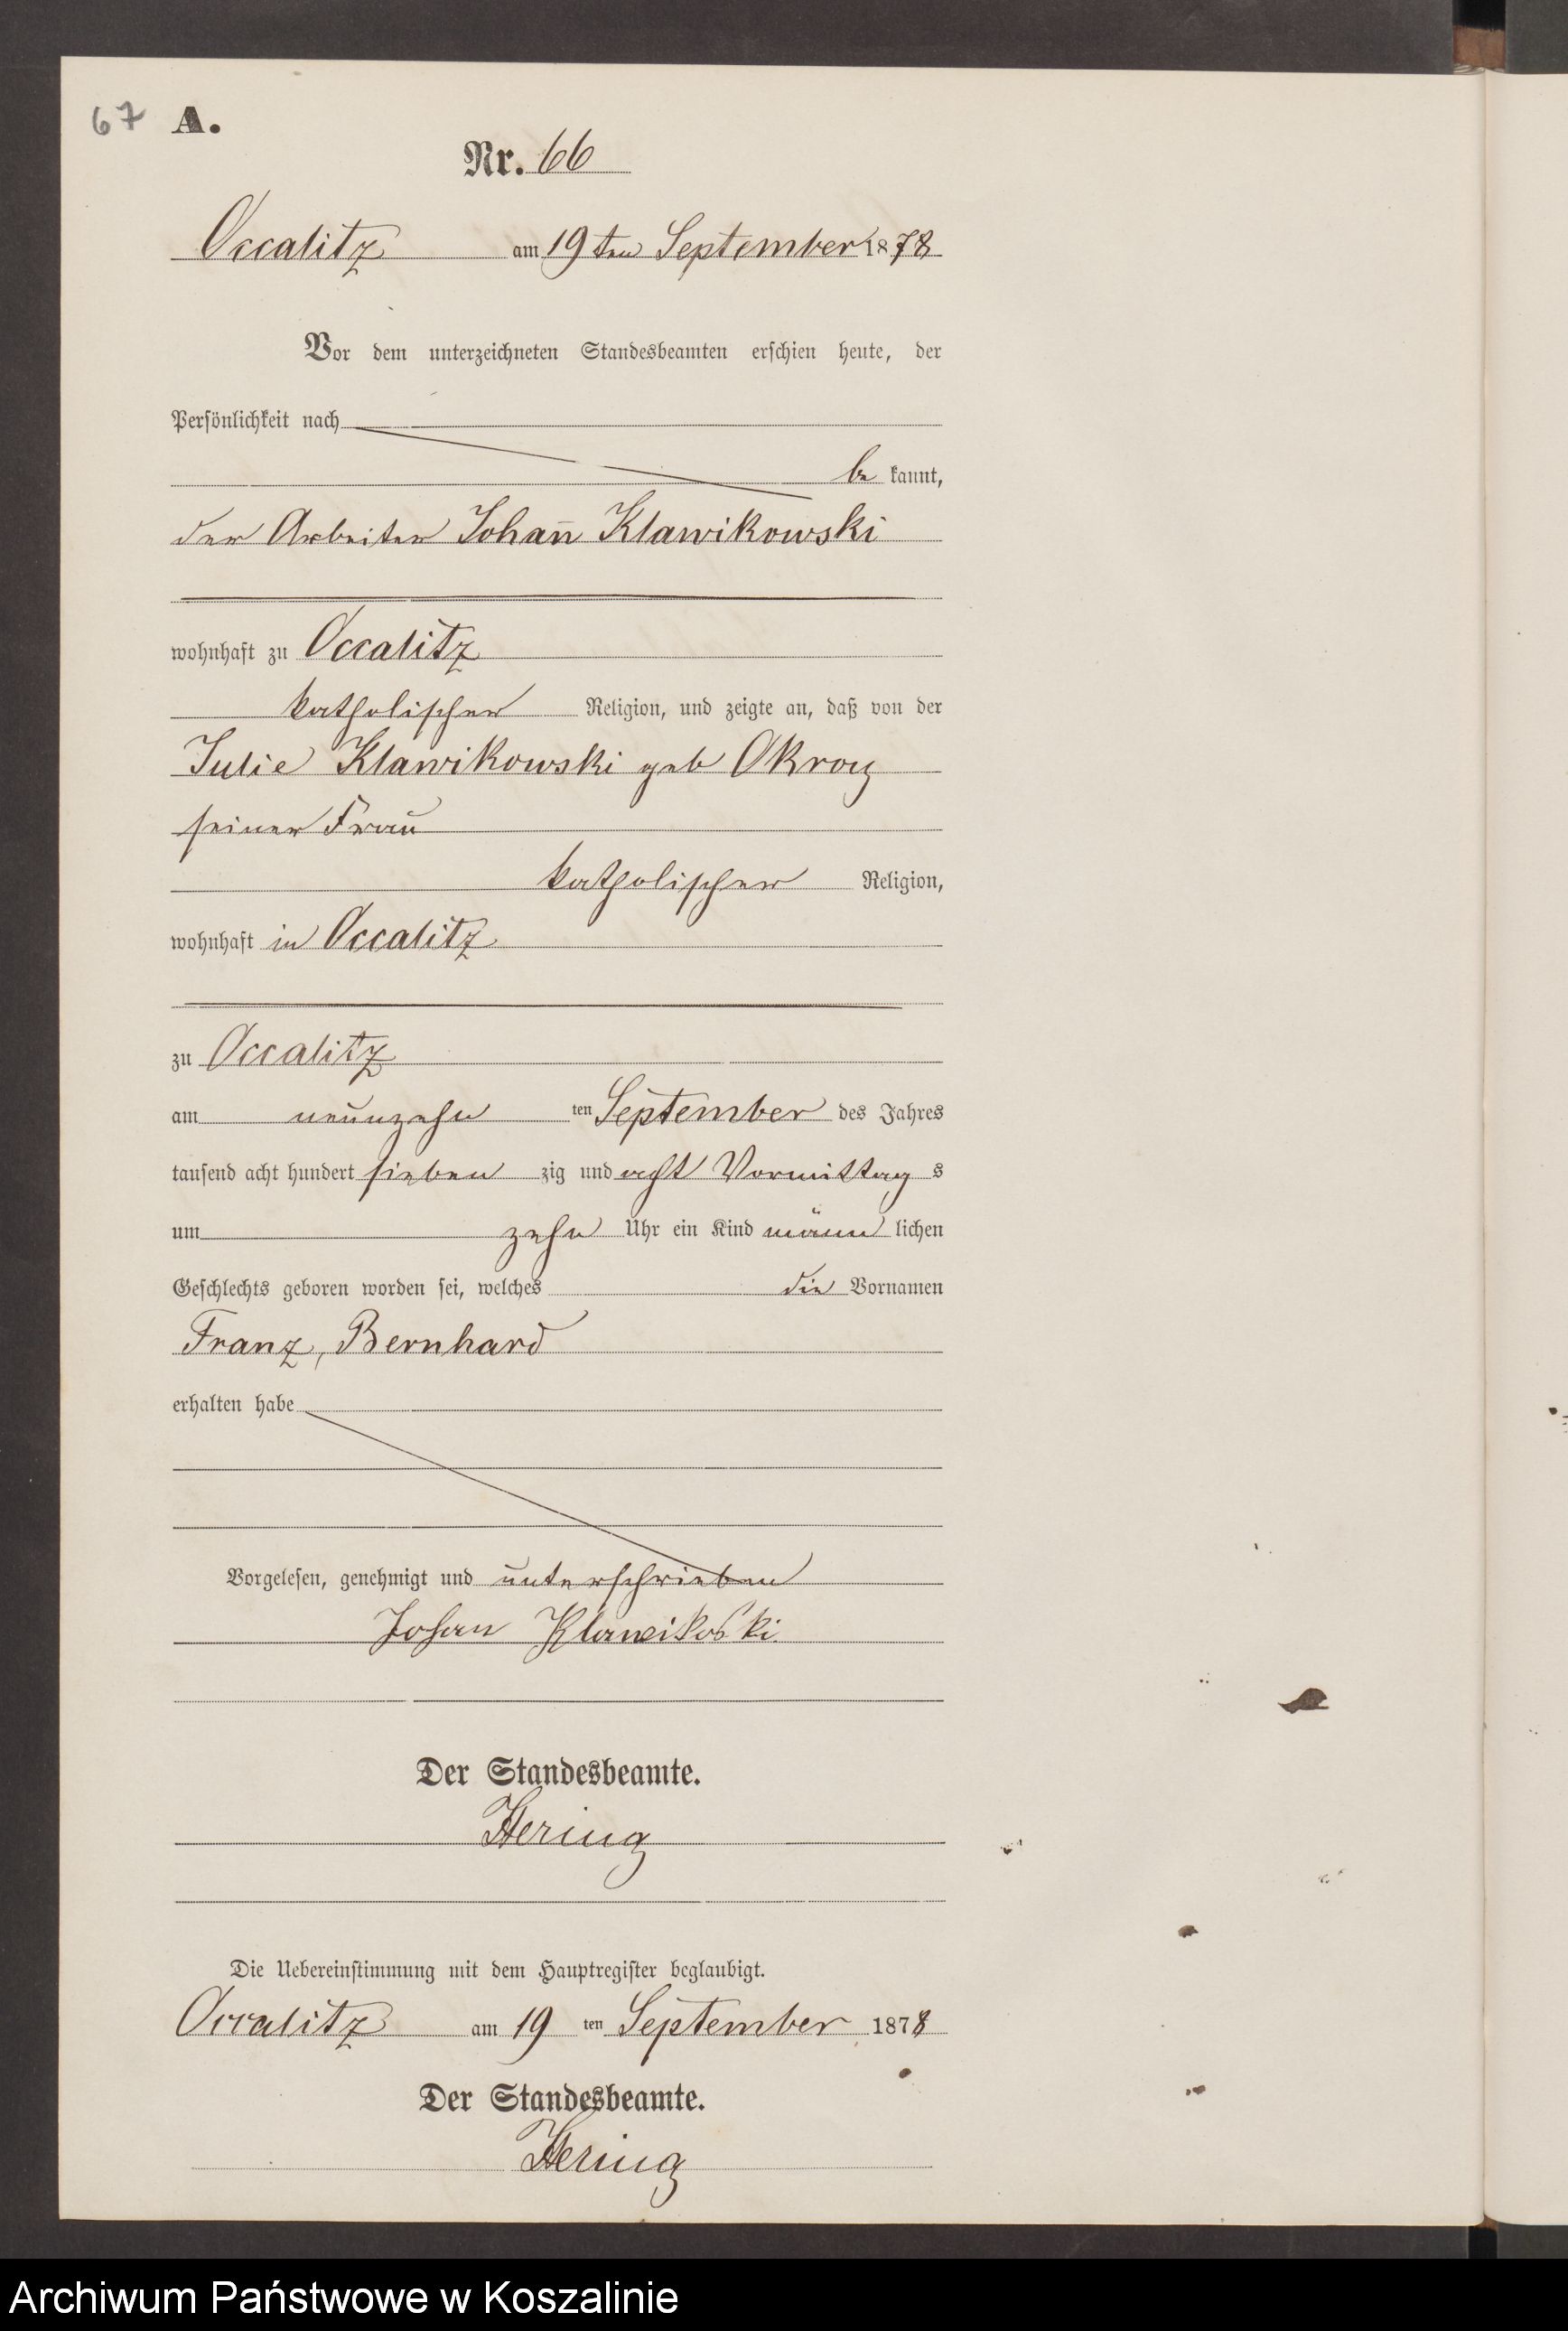 67 A.
Nr. 66
Occalitz am 19ten September 1878
Vor dem unterzeichneten Standesbeamten erschien heute, der
Persönlichkeit nach
be kannt,
der Arbeiter Johan̅ Klawikowski
wohnhaft zu Occalitz
katholischer Religion, und zeigte an, daß von der
Julie Klawikowski geb Okroy
seiner Frau
katholischer Religion,
wohnhaft in Occalitz
zu Occalitz
am neunzehn ten September des Jahres
tausend acht hundert sieben zig und acht Vormittag s
um zehn Uhr ein Kind männ lichen
Geschlechts geboren worden sei, welches die Vornamen
Franz, Bernhard
erhalten habe
Vorgelesen, genehmigt und unterschrieben
Johan Klawikoski
Der Standesbeamte.
Hering
Die Uebereinstimmung mit dem Hauptregister beglaubigt.
Occalitz am 19 ten September 1878
Der Standesbeamte.
Hering
Archiwum Państwowe w Koszalinie